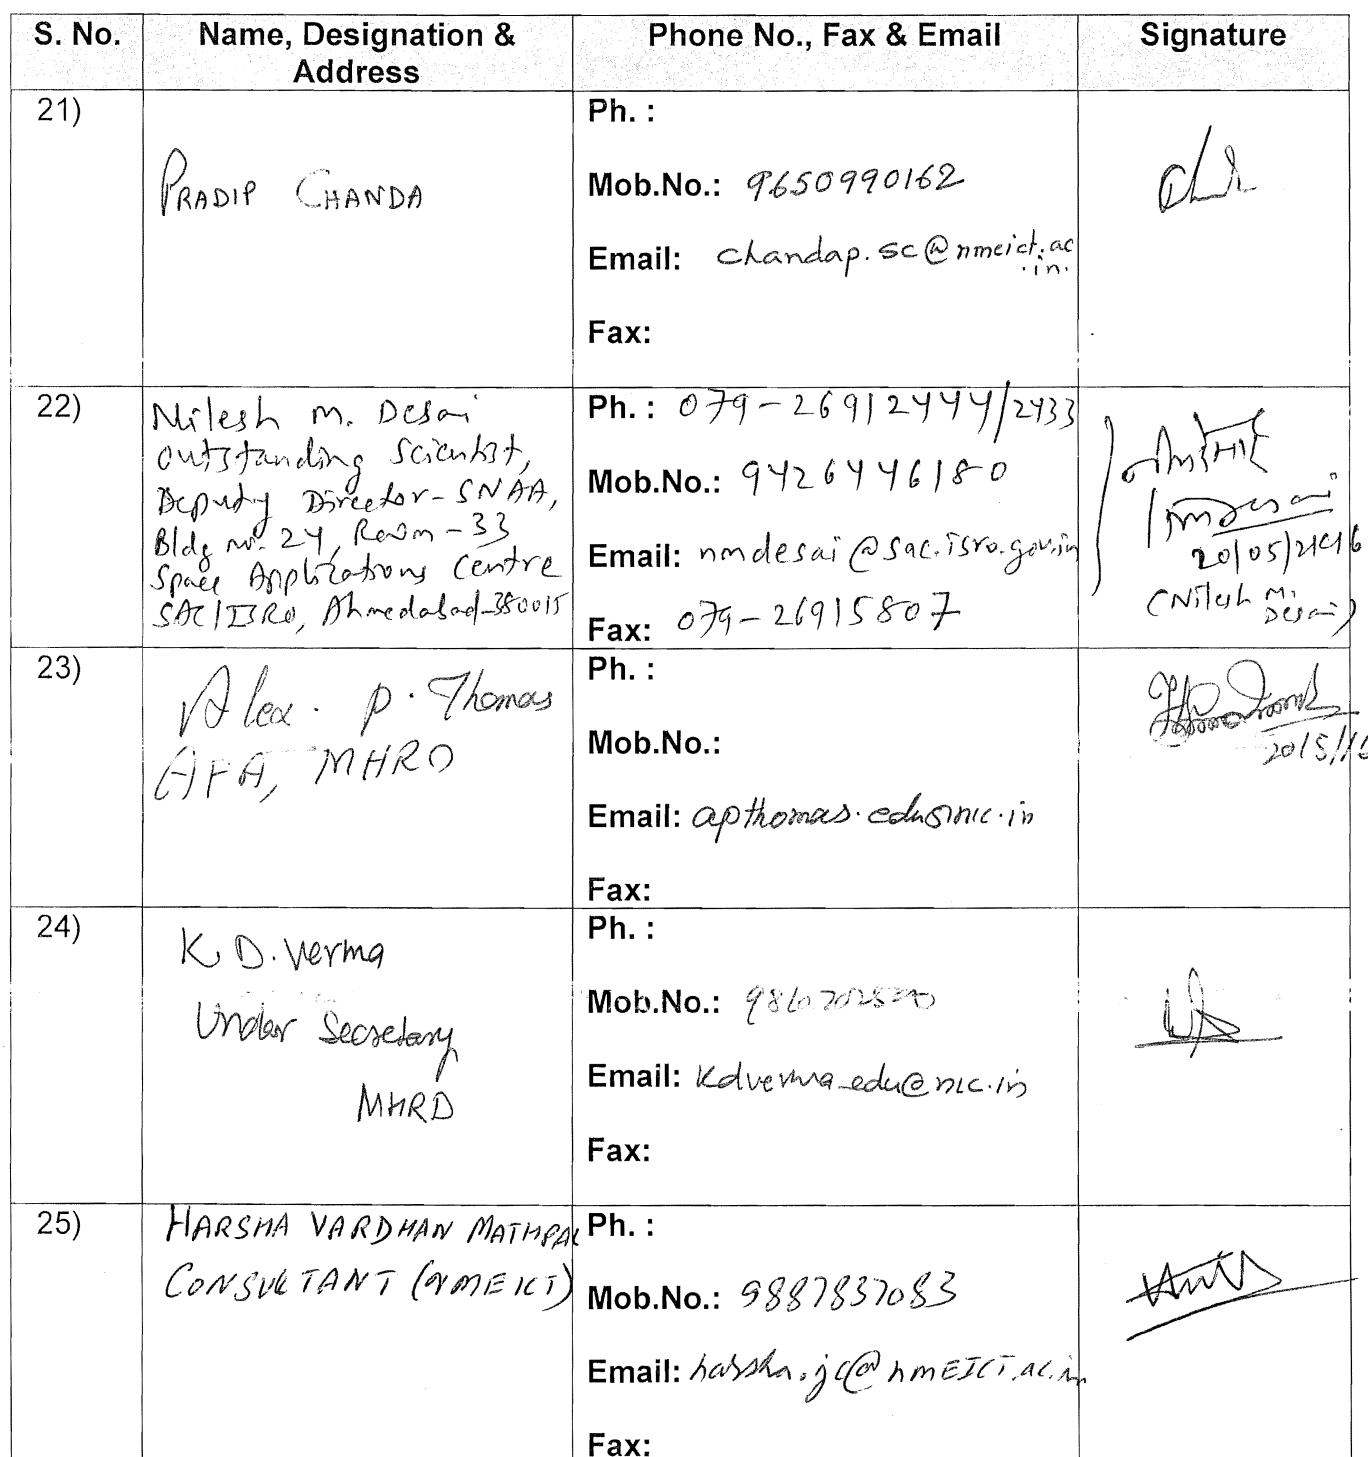 S. No. Name, Designation & Address Phone No., Fax & Email Signature
21)
PRADIP CHANDA
Ph. :
Mob.No.: 9650990162
Email: chandap.sc@nmeict.ac
.in.
Fax:
22)
Nilesh M. Desai
Outstanding Scientist,
Deputy Director-SNAA,
Bldg no. 24, Room-33
Space Applications Centre
SAC/ISRO, Ahmedabad-380015
Ph. : 079-26912444/2433
Mob.No.: 9426446180
Email: nmdesai@sac.isro.gov.in
Fax: 079-26915807
nmdesai
20/05/2016
(Nilesh M.
Desai)
23)
Alex. P. Thomas
AFA, MHRD
Ph. :
Mob.No.:
Email: apthomas.edu@nic.in
Fax:
20/5/16
24)
K. D. Verma
Under Secretary
MHRD
Ph. :
Mob.No.:
Email: kdverma_edu@nic.in
Fax:
25)
HARSHA VARDHAN MATHPAL
CONSULTANT (NMEICT)
Ph. :
Mob.No.: 9887837083
Email: harsha.jc@nmEICT.ac.in
Fax: